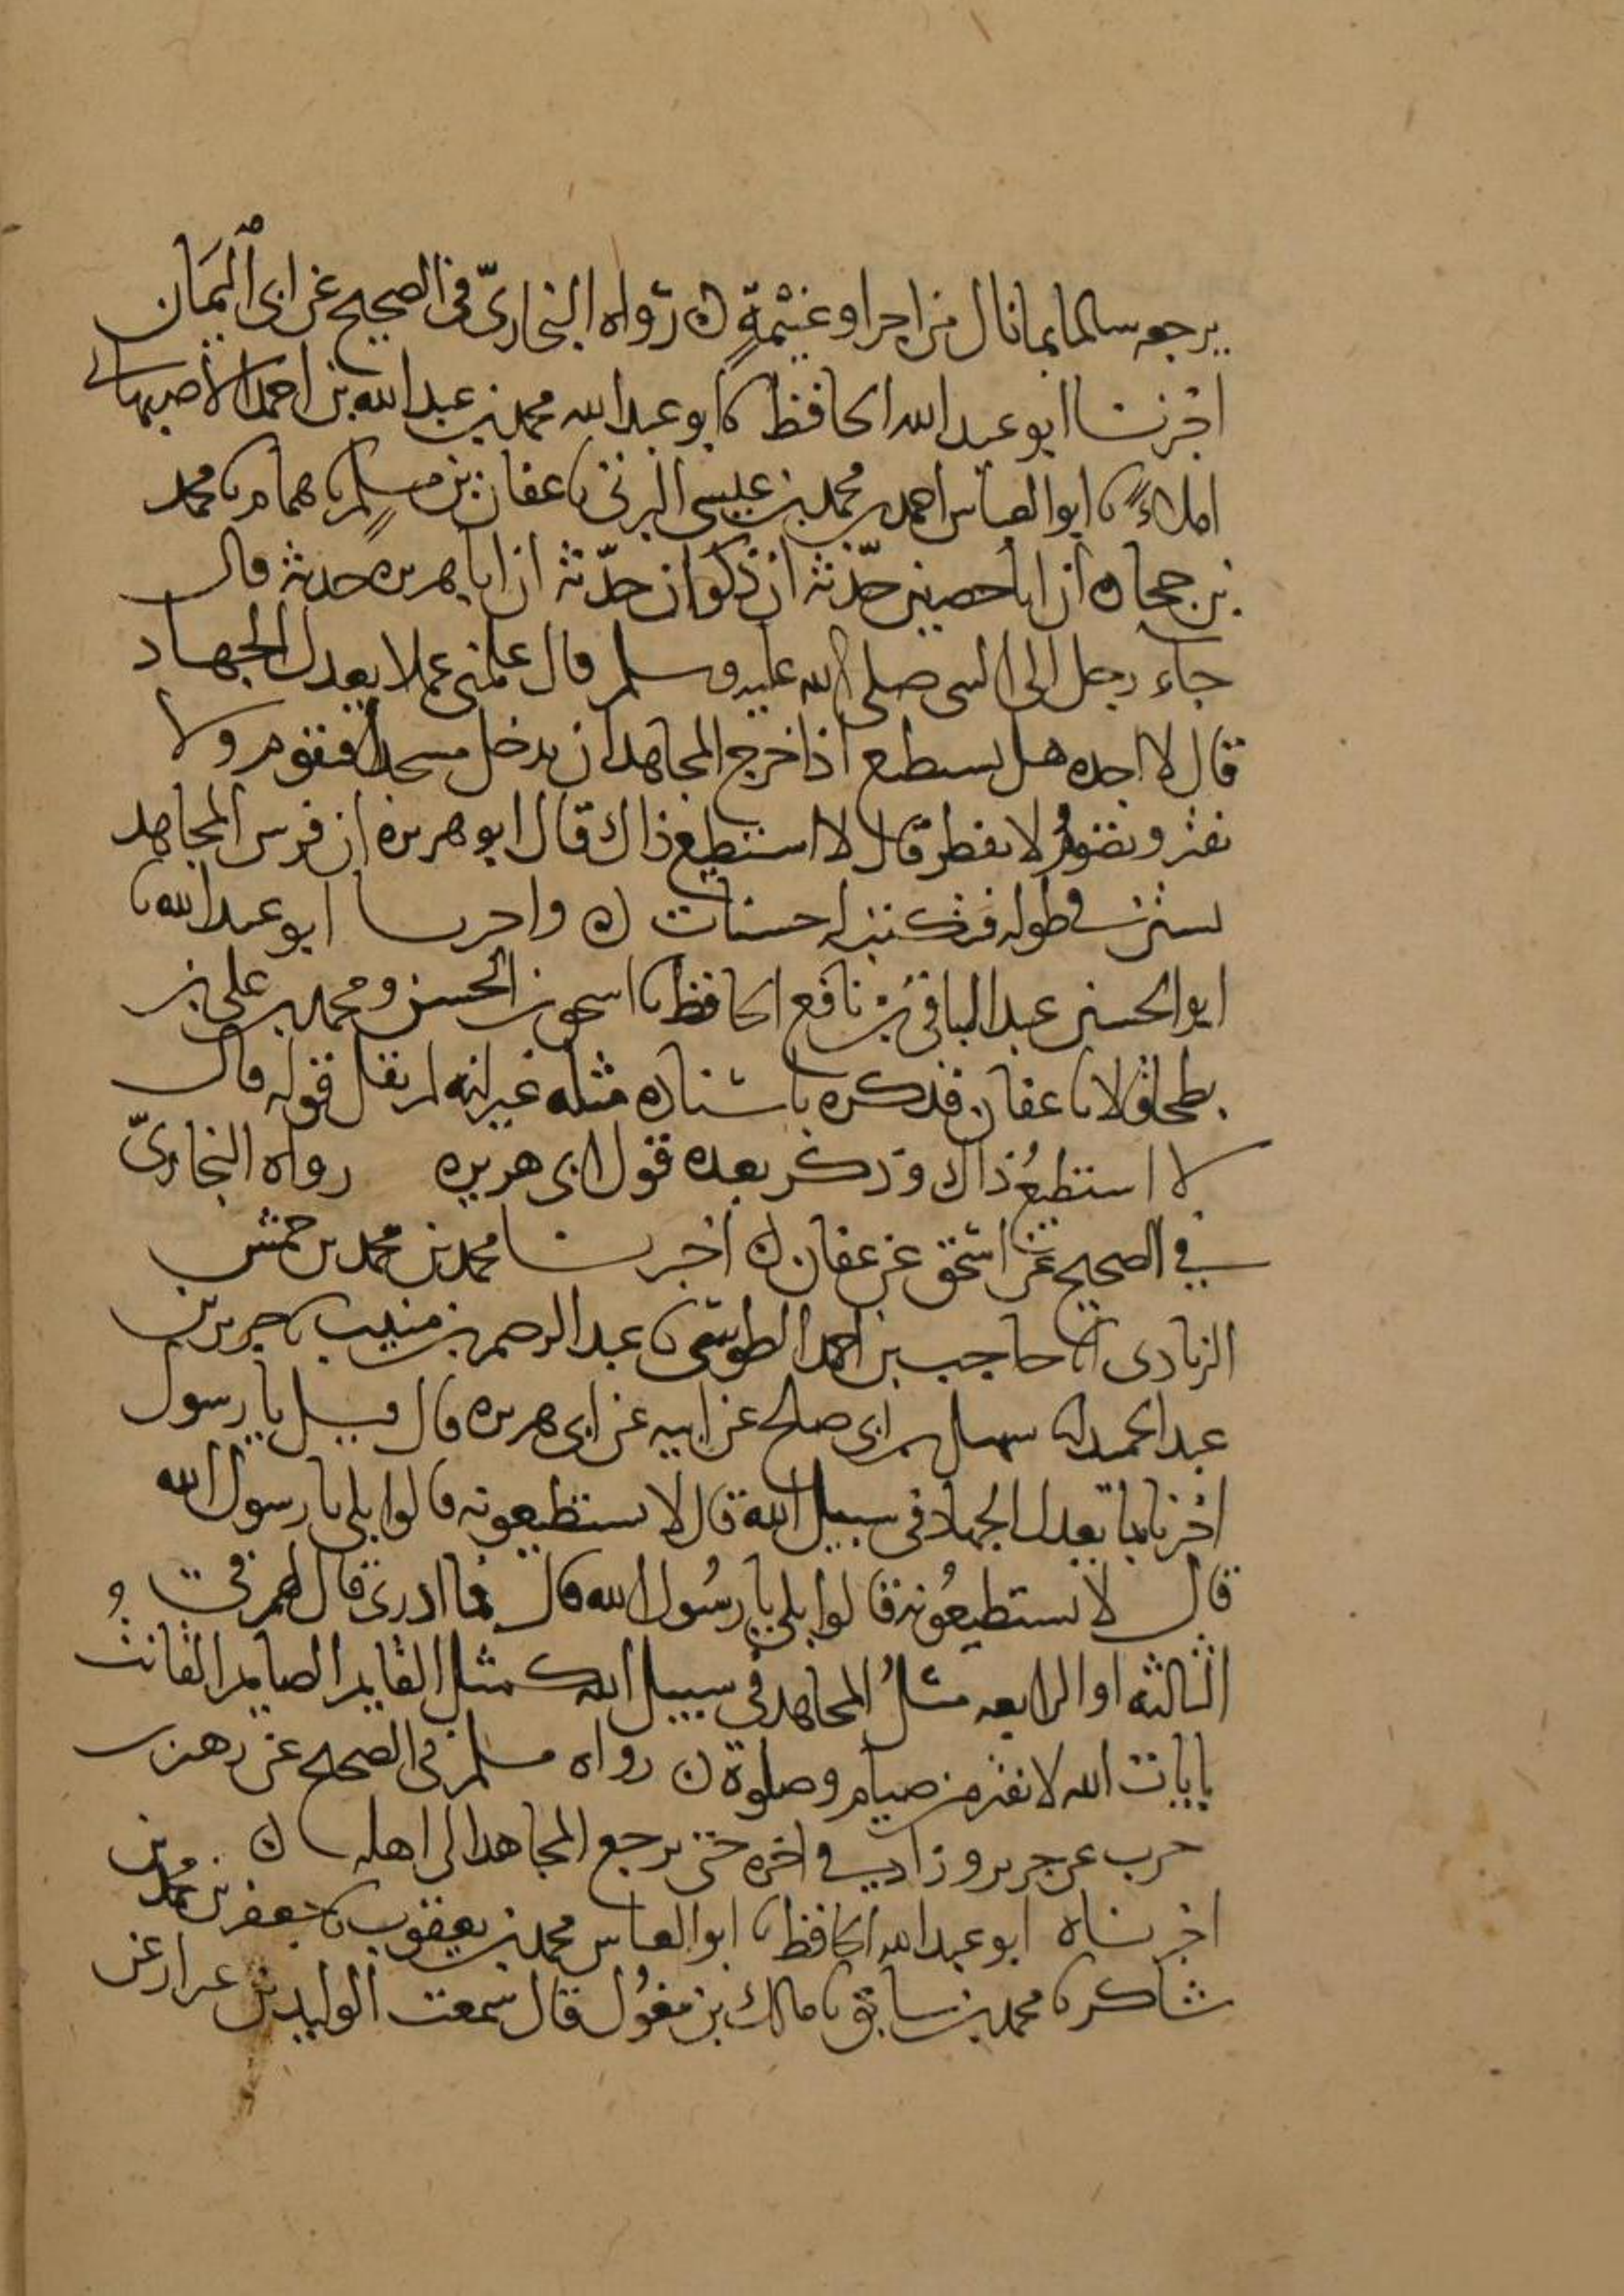 يرجعه سالما بما نال من اجر او غنيمةٍ ن رواه البخاريّ في الصحيح عن ابى اليمان
اخبرنا ابو عبد الله الحافظ نا ابو عبد الله محمد بن عبد الله بن احمد الاصبهاني
املاءً نا ابو العباس احمد بن محمد بن عيسى البرتى نا عفان بن مسلم نا همام نا محمد
بن جحاده ان ابا حصين حدّثه ان ذكوان حدّثه ان ابا هريره حدثه قال
جاء رجل الى النبى صلى الله عليه وسلم قال علمنى عملا يعدل الجهاد
قال لا اجده هل تستطيع اذا خرج المجاهد ان تدخل مسجدا فتقوم ولا
تفتر وتصوم ولا تفطر قال لا استطيع ذاك قال ابو هريره ان فرس المجاهد
ليستن في طوله فتكتب له حسنات ن واخبرنا ابو عبد الله نا
ابو الحسين عبد الباقي بن نافع الحافظ نا اسحق بن الحسن ومحمد بن علي بن
بطحا قالا نا عفان فذكره باسناده مثله غير انه لم يقل قوله قال
لا استطيعُ ذاك وذكر بعده قول ابى هريره رواه البخاريّ
في الصحيح عن اسحق عن عفان ن اخبرنا محمد بن محمد بن محمش
الزيادى انا حاجب بن احمد الطوسى نا عبد الرحمن بن منيب نا جرير بن
عبد الحميد انا سهيل بن ابى صلح عن ابيه عن ابى هريره قال قيل يا رسول
اخبرنا بما يعدل الجهاد في سبيل الله قال لا تستطيعونه قالوا بلى يا رسول الله
قال لا تستطيعُونه قالوا بلى يا رسُول الله قال فما ادرى قال لهم في و
الثالثه او الرابعه مثلُ المجاهد في سبيل الله كمثل القايم الصايم القانت
بايات الله لا يفتر من صيام وصلوة ن رواه مسلم في الصحيح عن زهير بن
حرب عن جرير وزاد في اخره حتى يرجع المجاهد الى اهله ن
اخبرناه ابو عبد الله الحافظ نا ابو العباس محمد بن يعقوب نا جعفر بن محمد بن
شاكر نا محمد بن سابق نا مالك بن مغوُل قال سمعت الوليد بن عيزار عن